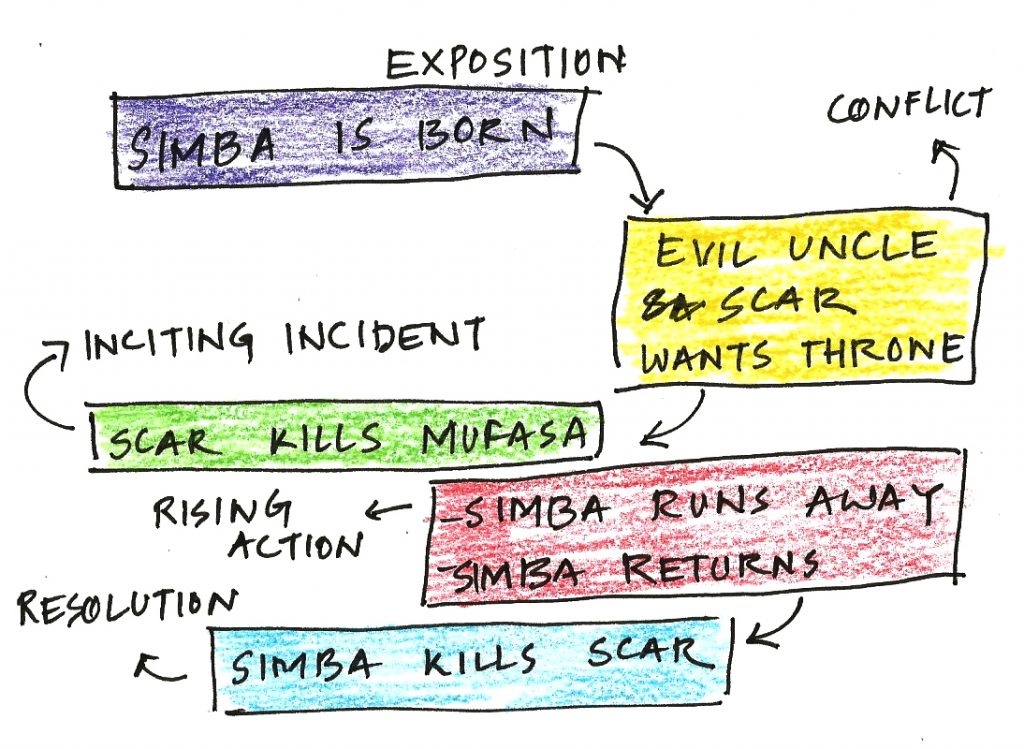 EXPOSITION
SIMBA IS BORN
CONFLICT
EVIL UNCLE
SCAR
WANTS THRONE
INCITING INCIDENT
SCAR KILLS MUFASA
RISING
ACTION
-SIMBA RUNS AWAY
-SIMBA RETURNS
RESOLUTION
SIMBA KILLS SCAR